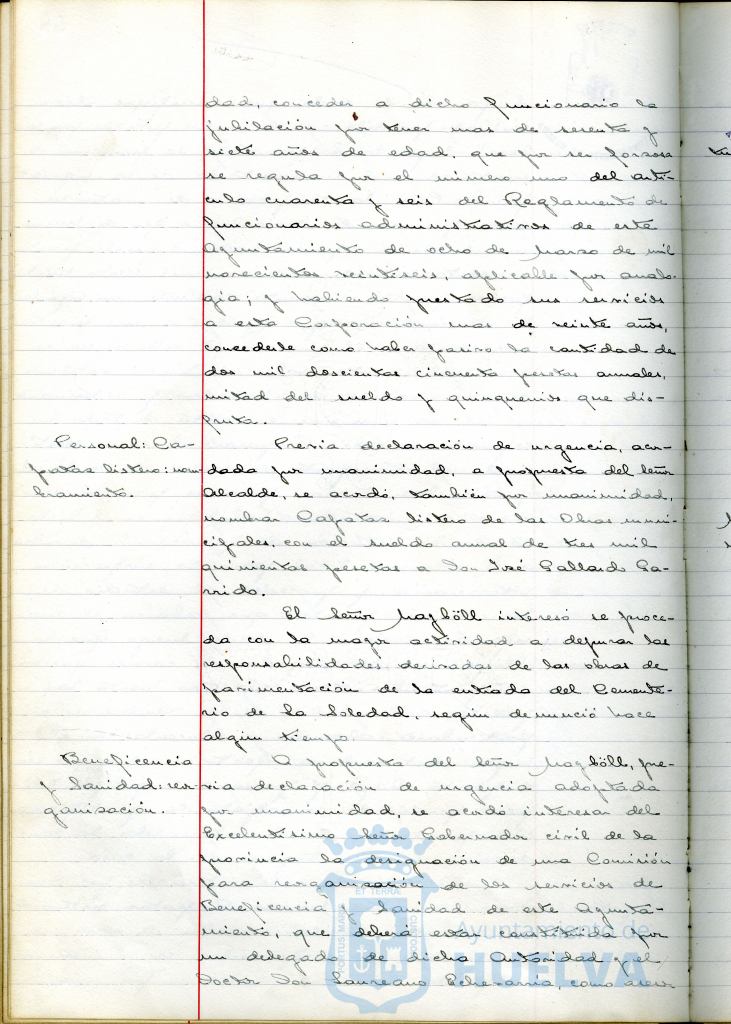 dad, conceder a dicho funcionario la
jubilación por tener mas de sesenta y
siete años de edad, que por ser forzosa
se regula por el número uno del artí-
culo cuarenta y seis del Reglamento de
funcionarios administrativos de este
Ayuntamiento de ocho de Marzo de mil
novecientos veintiseis, aplicable por analo-
gia; y habiendo prestado sus servicios
a esta Corporación mas de veinte años,
concederle como haber pasivo la cantidad de
dos mil doscientas cincuenta pesetas anuales,
mitad del sueldo y quinquenios que dis-
fruta.
Personal: Ca-
pataz listero: nom-
bramiento.
Previa declaración de urgencia, acor-
dada por unanimidad, a propuesta del Señor
Alcalde, se acordó, también por unanimidad,
nombrar Capataz listero de las Obras muni-
cipales, con el sueldo anual de tres mil
quinientas pesetas a Don José Gallardo Ga-
rrido.
El Señor Mazböll interesó se proce-
da con la mayor actividad a depurar las
responsabilidades derivadas de las obras de
pavimentación de la entrada del Cemente-
rio de La Soledad, según denunció hace
algún tiempo.
Beneficencia
y Sanidad: reor-
ganización.
A propuesta del Señor Mazböll, pre-
via declaración de urgencia adoptada
por unanimidad, se acordó interesar del
Excelentísimo Señor Gobernador civil de la
provincia la designación de una Comisión
para reorganización de los servicios de
Beneficencia y Sanidad de este Ayunta-
miento, que deberá estar constituida por
un delegado de dicha Autoridad y el
Doctor Don Laureano Echevarría, como aseso
Ayuntamiento de
HUELVA